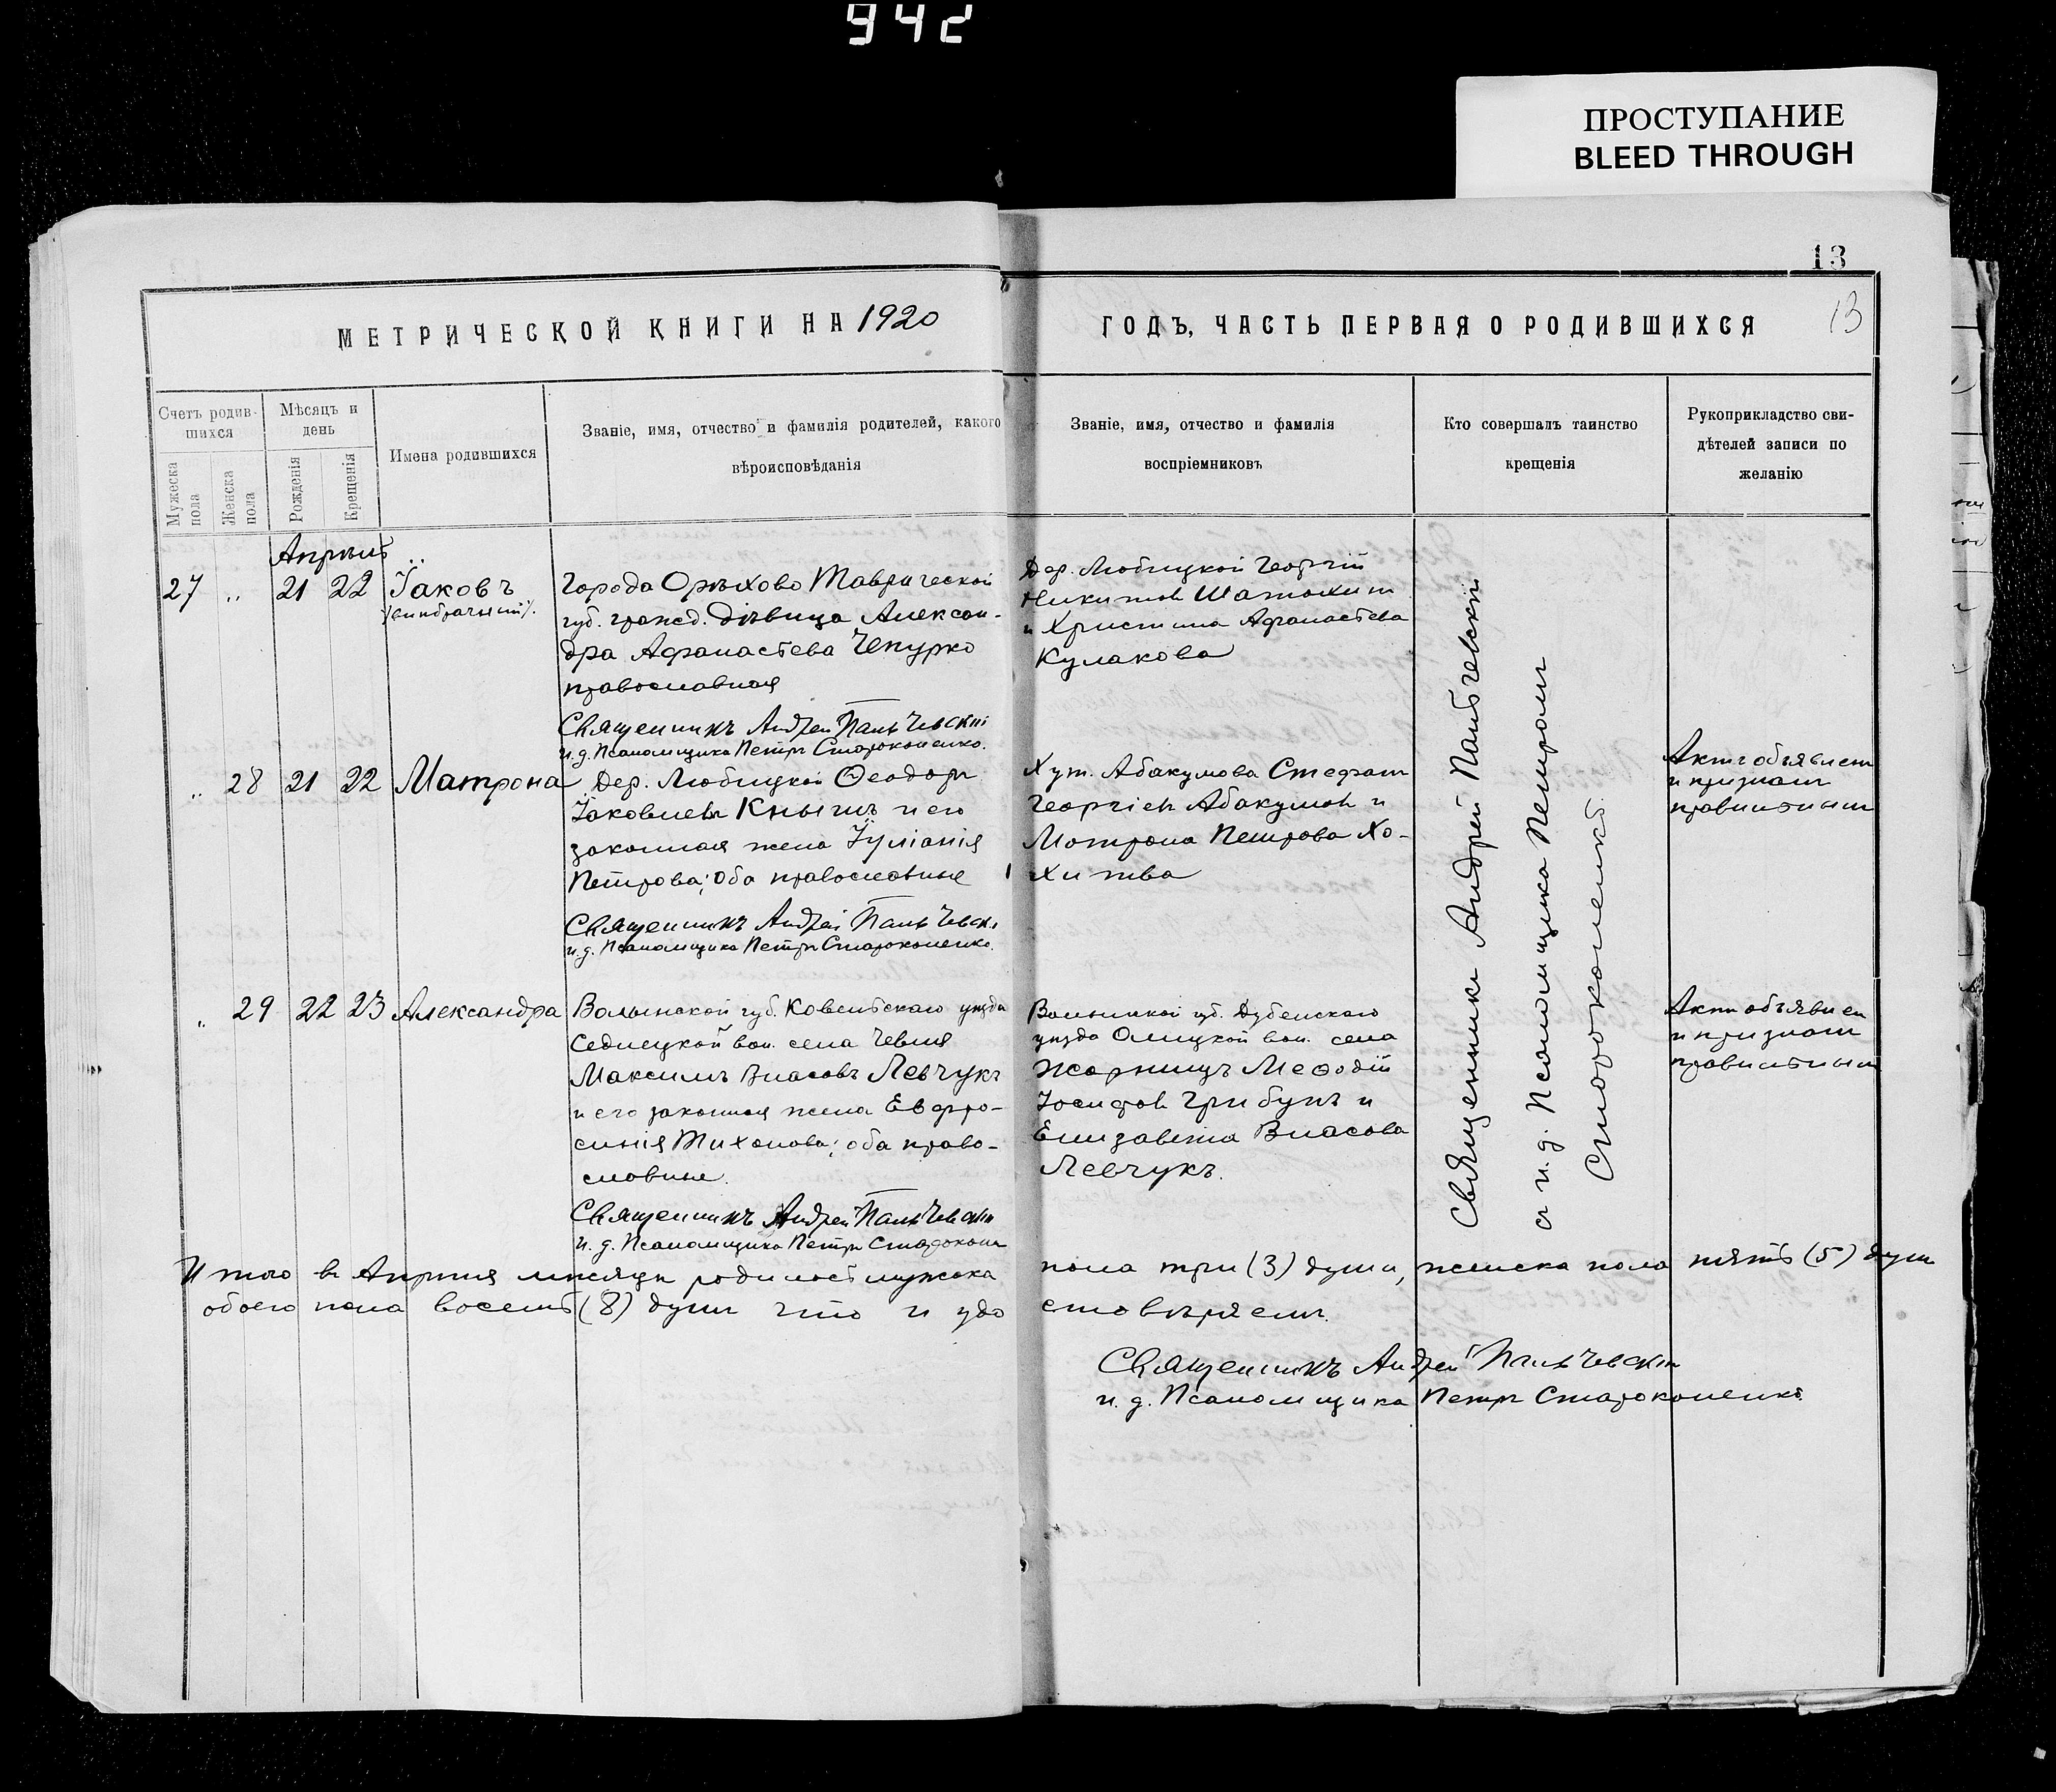 942
ПРОСТУПАНИЕ
BLEED THROUGH
13
13
МЕТРИЧЕСКОЙ КНИГИ НА 1920
ГОДЪ, ЧАСТЬ ПЕРВАЯ О РОДИВШИХСЯ
Счетъ родив-
шихся
Мужеска пола
Женска пола
Мѣсяцъ и
день
Рожденія
Крещенія
Имена родившихся
Званіе, имя, отчество и фамилія родителей, какого
вѣроисповѣданія
Званіе, имя, отчество и фамилія
воспріемниковъ
Кто совершалъ таинство
крещенія
Рукоприкладство сви-
дѣтелей записи по
желанію
Апрель
27 „ 21 22 Іаковъ
(внебрачный).
Города Орѣхово Таврической
губ. гражд. дѣвица Алексан-
дра Афанасьева Чепурко
православная
Священникъ Андрей Пальчевскій
и.д. Псаломщика Петръ Староконенко.
Дер. Любицкой Георгій
Никитовъ Шатохинъ
и Христина Афанасьева
Кулакова
„ 28 21 22 Матрона
Дер. Любицкой Ѳеодоръ
Іаковлевъ Кнышъ и его
законная жена Іуліанія
Петрова; оба православные
Священникъ Андрей Пальчевскі
и.д. Псаломщика Петръ Староконенко.
Хут. Абакумова Стефанъ
Георгіевъ Абакумовъ и
Матрона Петрова Хо-
Актъ объявленъ
и признанъ
правильнымъ
„ 29 22 23 Александра
Волынской губ. Ковельскаго уѣзда
Седлецкой вол. села
Максимъ Власовъ Левчукъ
и его законная жена Евфро-
синія Тихонова; оба право-
славные.
Священникъ Андрей Пальчевскій
и.д. Псаломщика Петръ Староконен
Волынской губ. Дубенскаго
уѣзда Олыцкой вол. села
Жорнищъ Меѳодій
Іосифовъ Грибукъ и
Елизавета Власова
Левчукъ.
Актъ объявлен
и признанъ
правильнымъ
Священникъ Андрей Пальчевскій
съ и.д. Псаломщика Петромъ
Староконенко.
Итого въ Апрѣлѣ мѣсяцѣ родилось мужска пола три (3) души, женска пола пять (5) душъ
обоего пола восемь (8) душъ что и удо стовѣряемъ.
Священникъ Андрей Пальчевскій
и.д. Псаломщика Петръ Староконенко.